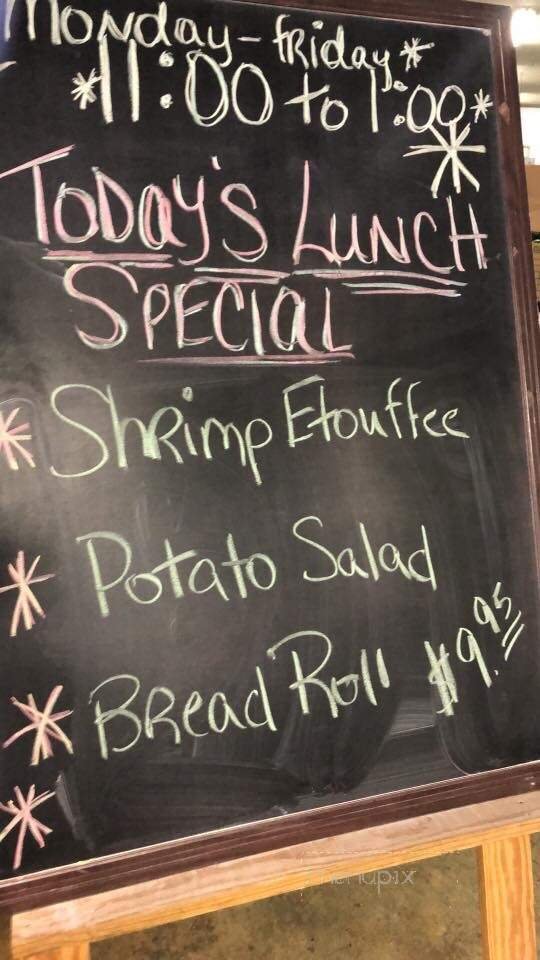 Monday - Friday *
* 11:00 to 1:00 *
*
TODAY'S LUNCH
SPECIAL
* Shrimp Etouffee
* Potato Salad
* Bread Roll $9.95
*
menupix